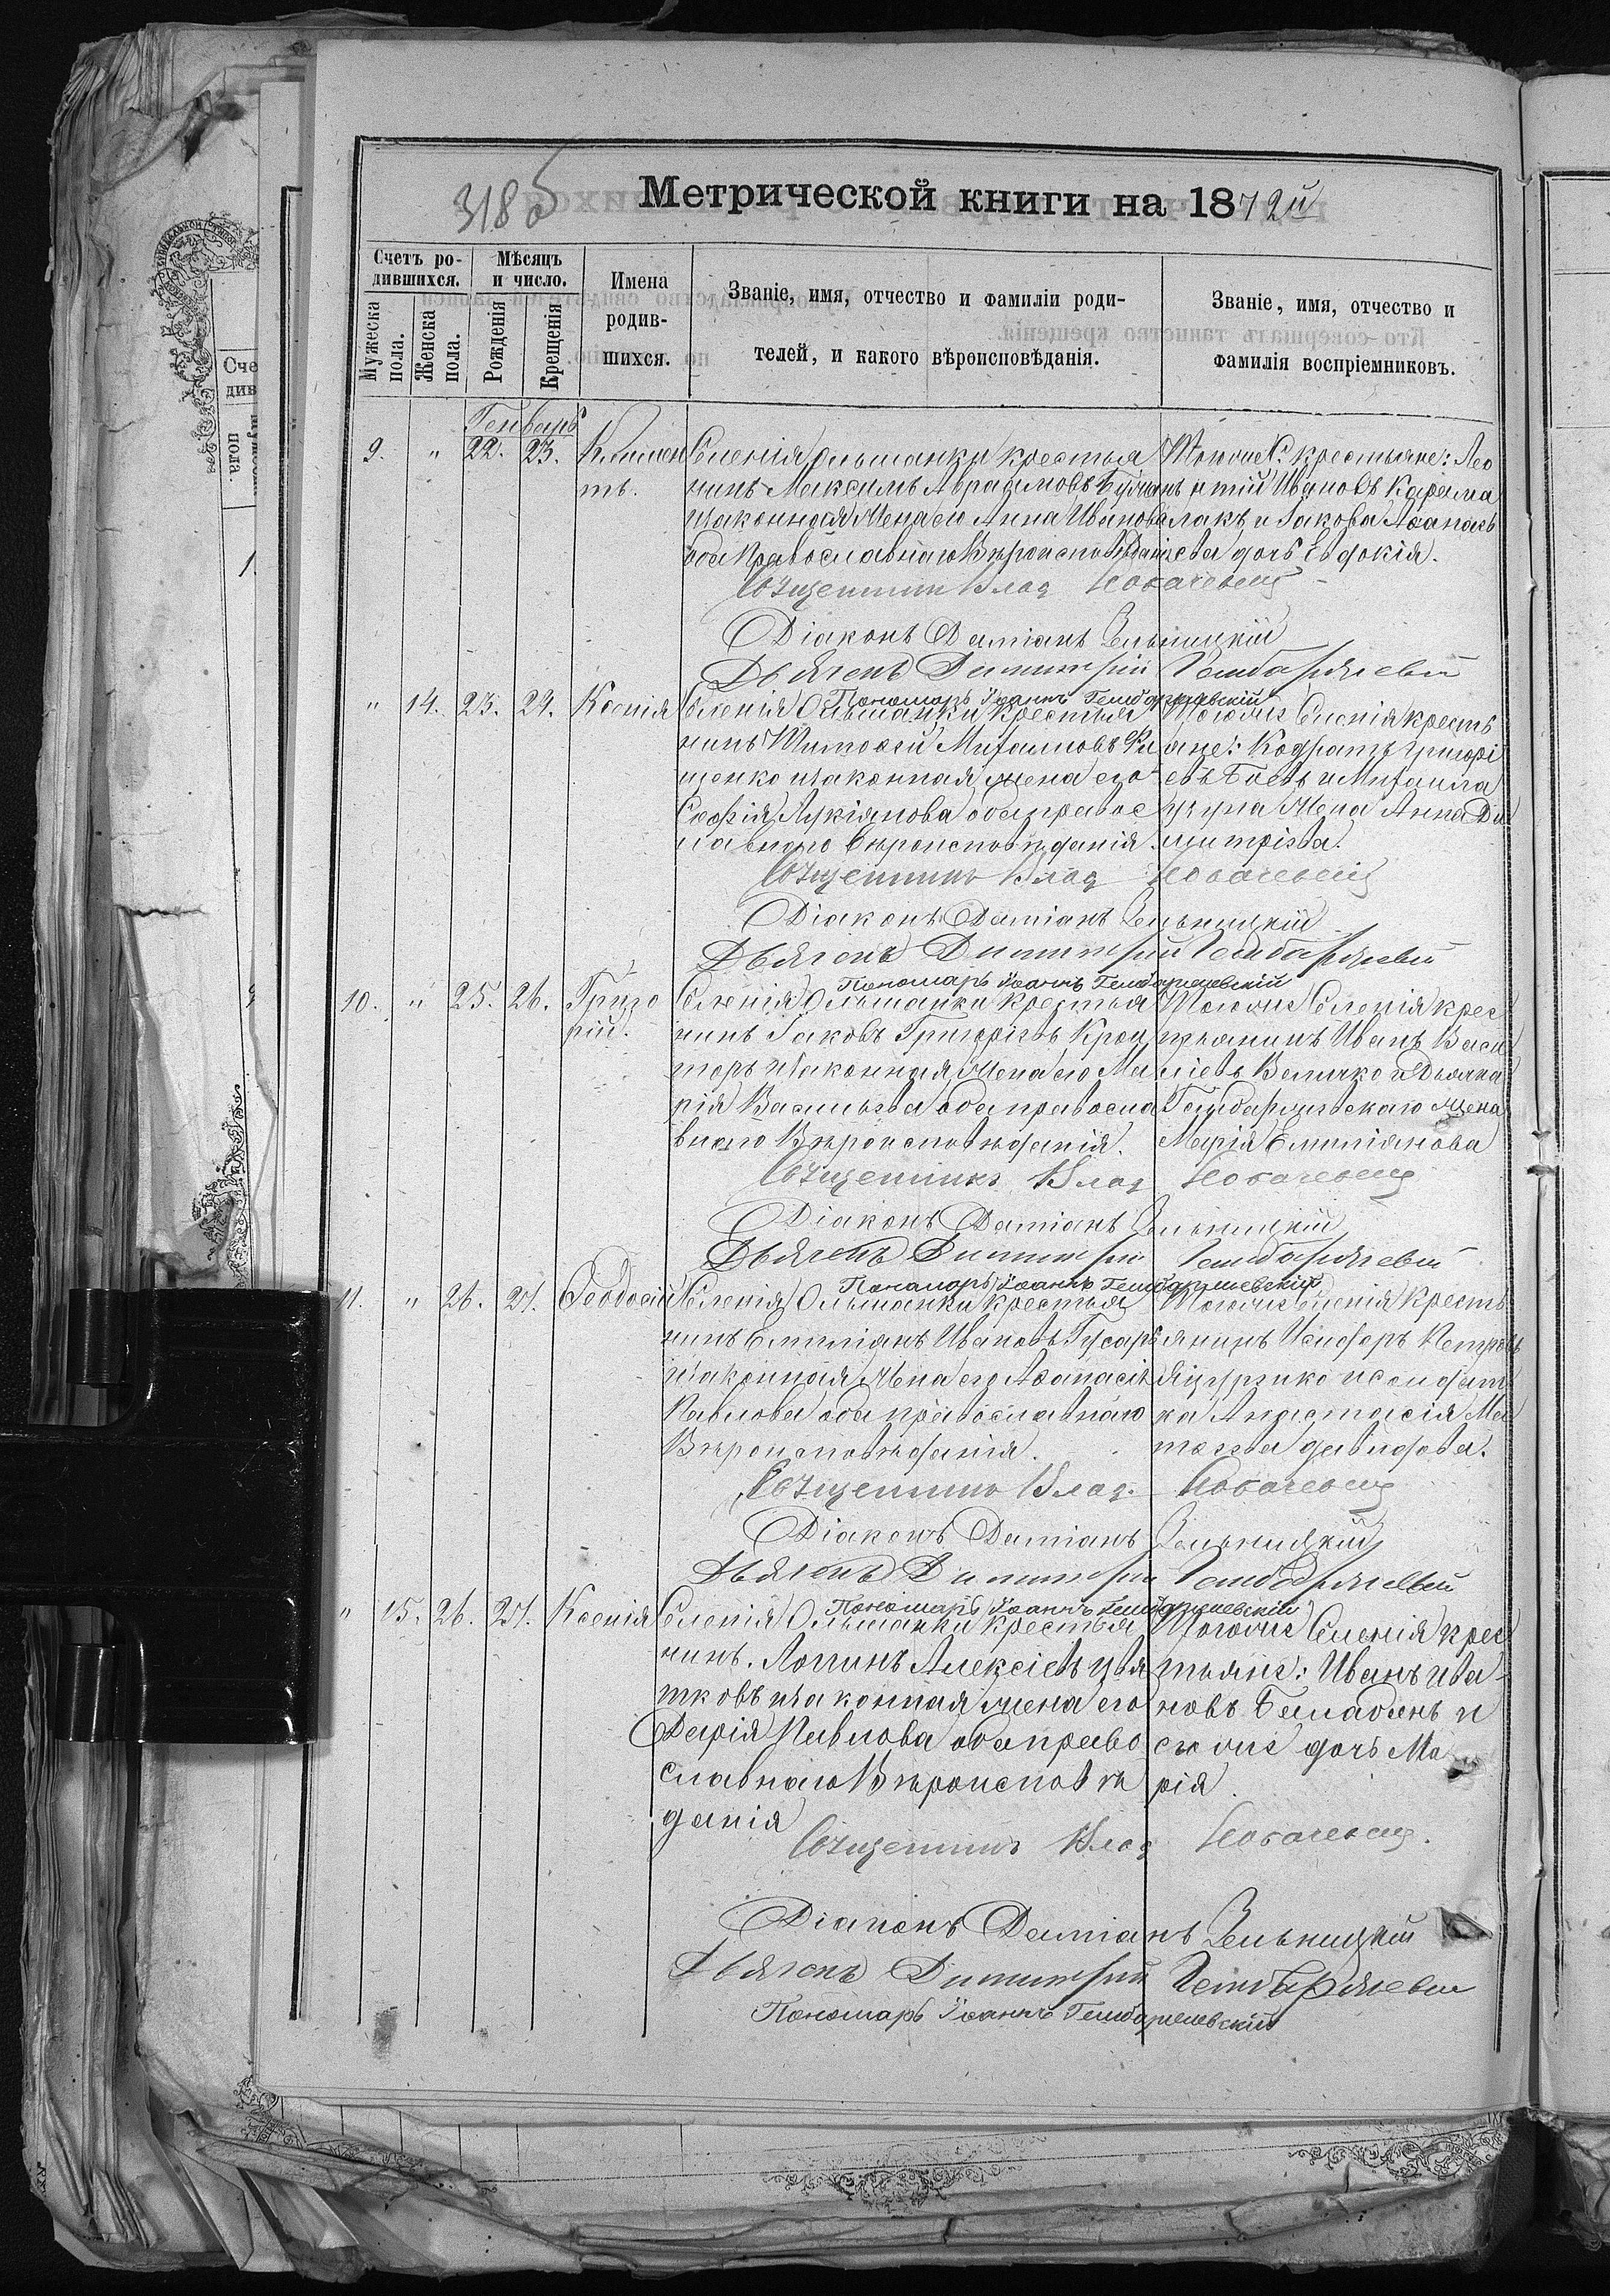 318 об
Метрической книги на 1872й
Счетъ ро-
дившихся.
Мѣсяцъ
и число.
Мужеска
пола.
Женска
пола.
Рожденія
Крещенія
Имена
родив-
шихся.
Званіе, имя, отчество и фамиліи роди-
телей, и какого вѣроисповѣданія.
Званіе, имя, отчество и
фамилія воспріемниковъ.
Генварь
9. " 22. 23. Климен
тъ.
Селенія Ольшанки крестья
нинъ Максимъ Аврамовъ
и законная жена его Анна Иванова
оба православнаго Вѣроисповѣданія
Тогоже С. крестьяне: Лео
нтій Ивановъ
и Іакова Аѳанасъ
ева дочь Евдокія.
Священникъ Влад
Діаконъ Даміанъ Зельницкій
Дьячекъ Димитрій Гембаржевскій
Пономарь Іоаннъ Гембаржевскій
" 14. 23. 24. Ксенія
Селенія Ольшанки крестья
нинъ Тимоѳей Михаиловъ Фи
щенко и законная жена его
Софія Лукіянова оба правос
лавнаго Вѣроисповѣданія.
Тогоже Селенія кресть
яне: Кодратъ Григорі
евъ и Михаила
жена Анна Ди
митріева.
Священникъ Влад
Діаконъ Даміанъ Зельницкій
Дьячекъ Димитрій Гембаржевскій
Пономарь Іоаннъ Гембаржевскій
10. " 25. 26. Григо
рій.
Селенія Ольшанки крестья
нинъ Іаковъ Григорієвъ
и законная жена его Ма
рія Васильева оба правосла
внаго Вѣроисповѣданія.
Тогоже Селенія крес
тьянинъ Иванъ Васи
лієвъ Величко и Дьячка
Гембаржевскаго жена
Марія Емиліянова
Священникъ Влад
Діаконъ Даміанъ Зельницкій
Дьячекъ Димитрій Гембаржевскій
Пономарь Іоаннъ Гембаржевскій
11. " 26. 27. Ѳеодосій
Селенія Ольшанки крестья
нинъ Емиліянъ Ивановъ Гусаръ
и законная жена его Аѳанасія
Павлова оба православнаго
Вѣроисповѣданія.
Тогоже Селенія кресть
янинъ Исидоръ Петровъ
и солдат
ка Анастасія Ма
тѳеева Давидова.
Священникъ Влад.
Діаконъ Даміанъ Зельницкій
Дьячекъ Димитрій Гембаржевскій
Пономарь Іоаннъ Гембаржевскій
" 15. 26. 27. Ксенія
Селенія Ольшанки крестья
нинъ. Логинъ Алексіевъ Цвя
тковъ и законная жена его
Дарія Павлова оба право
славнаго Вѣроисповѣ
данія
Тогоже Селенія крес
тьяне: Иванъ Ива
новъ и
его же дочь Ма
рія.
Священникъ Влад
Діаконъ Даміанъ Зельницкій
Дьячекъ Димитрій Гембаржевскій
Пономарь Іоаннъ Гембаржевскій